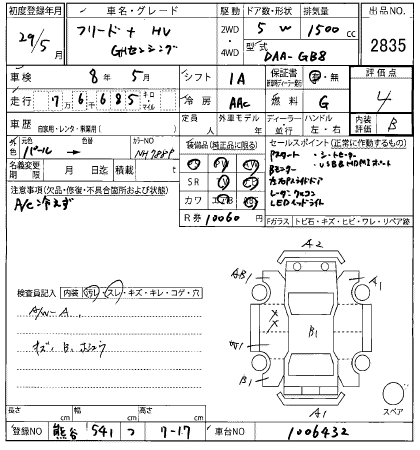 初度登録年月 車名・グレード 駆動 ドア数・形状 排気量 出品NO
29/5月 フリード+ HV 2WD 5 W 1500cc 2835
GHセンシング ・4WD 型式 DAA-GB8
車検 8年 5月 シフト IA 保証書 有・無 評価点
走行 7万6685 キロ・マイル 冷房 AAC 燃料 G 4
車歴 自家用・レンタ・事業用( ) 定員 人 外車モデル 年 ディーラー・並行 ハンドル 左・右 内装評価 B
外色 元色 パール → 色替 カラーNO NH788P
装備品(純正品に限る)
SR
カワ
セールスポイント(正常に作動するもの)
Pスタート ・シートヒーター
Bモニター ・USB HDMIポート
左右Pスライドドア
レーダークルコン
LEDヘッドライト
名義変更期限 月 日迄 積載 t
R券 10060円
Fガラス トビ石・キズ・ヒビ・ワレ・リペア跡
注意事項(欠品・修復・不具合箇所および状態)
A/C冷えず
検査員記入 内装 汚レ・スレ・キズ・キレ・コゲ・穴
A/W-A
A2
AB1
A1
W1
B1
B1
A1
スペア
長さ cm 幅 cm 高さ cm
登録NO 熊谷 541 つ 7-17 車台NO 1006432